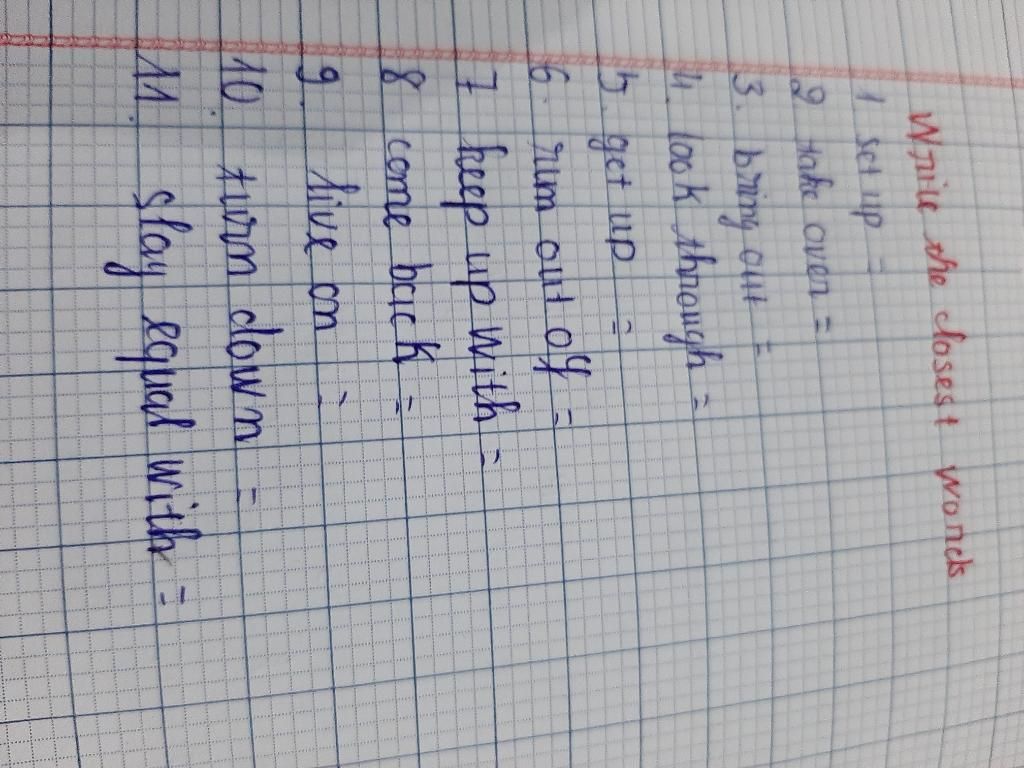 Write the closest words
1. set up =
2 take over =
3. bring out =
4. look through =
5. get up =
6. run out of =
7 keep up with =
8 come back =
9. live on =
10. turn down =
11. stay equal with =